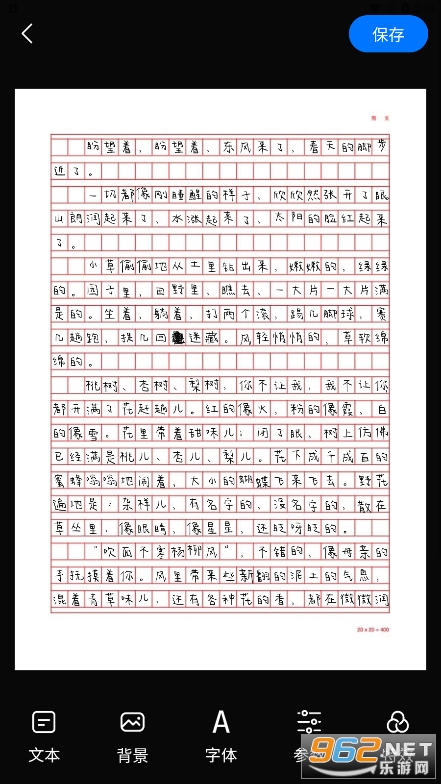 保存
盼望着，盼望着、东风来了、春天的脚步
近了。
一切都像刚睡醒的样子、欣欣然张开了眼
山朗润起来了、水涨起来了、太阳的脸红起来
了。
小草偷偷地从土里钻出来，嫩嫩的，绿绿
的。园子里，田野里、瞧去、一大片一大片满
是的。坐着，躺着，打两个滚，踢几脚球，赛
几趟跑，捉几回迷藏。风轻悄悄的，草软绵
绵的。
桃树、杏树、梨树，你不让我，我不让你
都开满了花赶趟儿。红的像火，粉的像霞、白
的像雪。花里带着甜味儿；闭了眼、树上仿佛
已经满是桃儿、杏儿、梨儿。花下成千成百的
蜜蜂嗡嗡地闹着，大小的蝴蝶飞来飞去。野花
遍地是：杂样儿，有名字的、没名字的，散在
草丛里，像眼睛，像星星，还眨呀眨的。
“吹面不寒杨柳风”，不错的、像母亲的
手抚摸着你。风里带来些新翻的泥土的气息，
混着青草味儿，还有各种花的香，都在微微润
20 x 20 = 400
文本
背景
字体
962.NET
乐游网